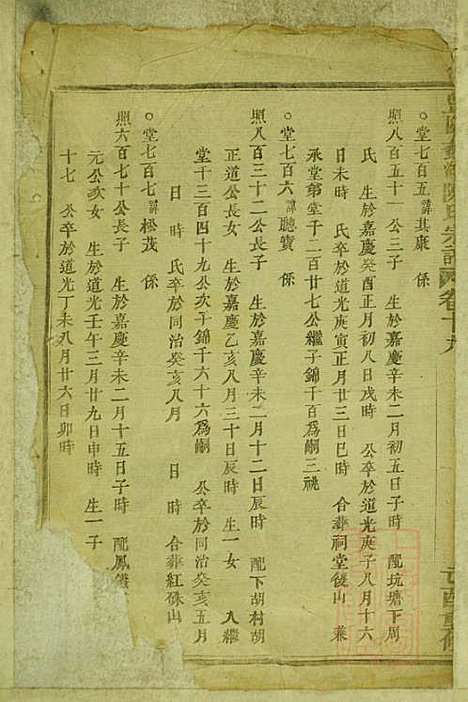 氏宗譜 卷十九
○堂七百五諱其康 係
照八百五十一公三子 生於嘉慶辛未二月初五日子時 配坑塘下周
氏 生於嘉慶癸酉正月初八日戌時 公卒於道光庚子八月十六
日未時 氏卒於道光庚寅正月廿三日巳時 合葬祠堂後山 兼
承堂弟堂千二百廿七公繼子錦千百爲嗣三祧
○堂七百六諱聽寶 係
照八百三十二公長子 生於嘉慶辛未二月十二日辰時 配下胡村胡
正道公長女 生於嘉慶乙亥八月三十日辰時 生一女 入繼
堂千三百四十九公次子錦千六十六爲嗣 公卒於同治癸亥五月
日 時 氏卒於同治癸亥八月 日 時 合葬紅硃山
○堂七百七諱松茂 係
照六百七十公長子 生於嘉慶辛未二月十五日子時 配鳳儀
元公次女 生於道光壬午三月廿九日申時 生一子
十七 公卒於道光丁未八月廿六日卯時